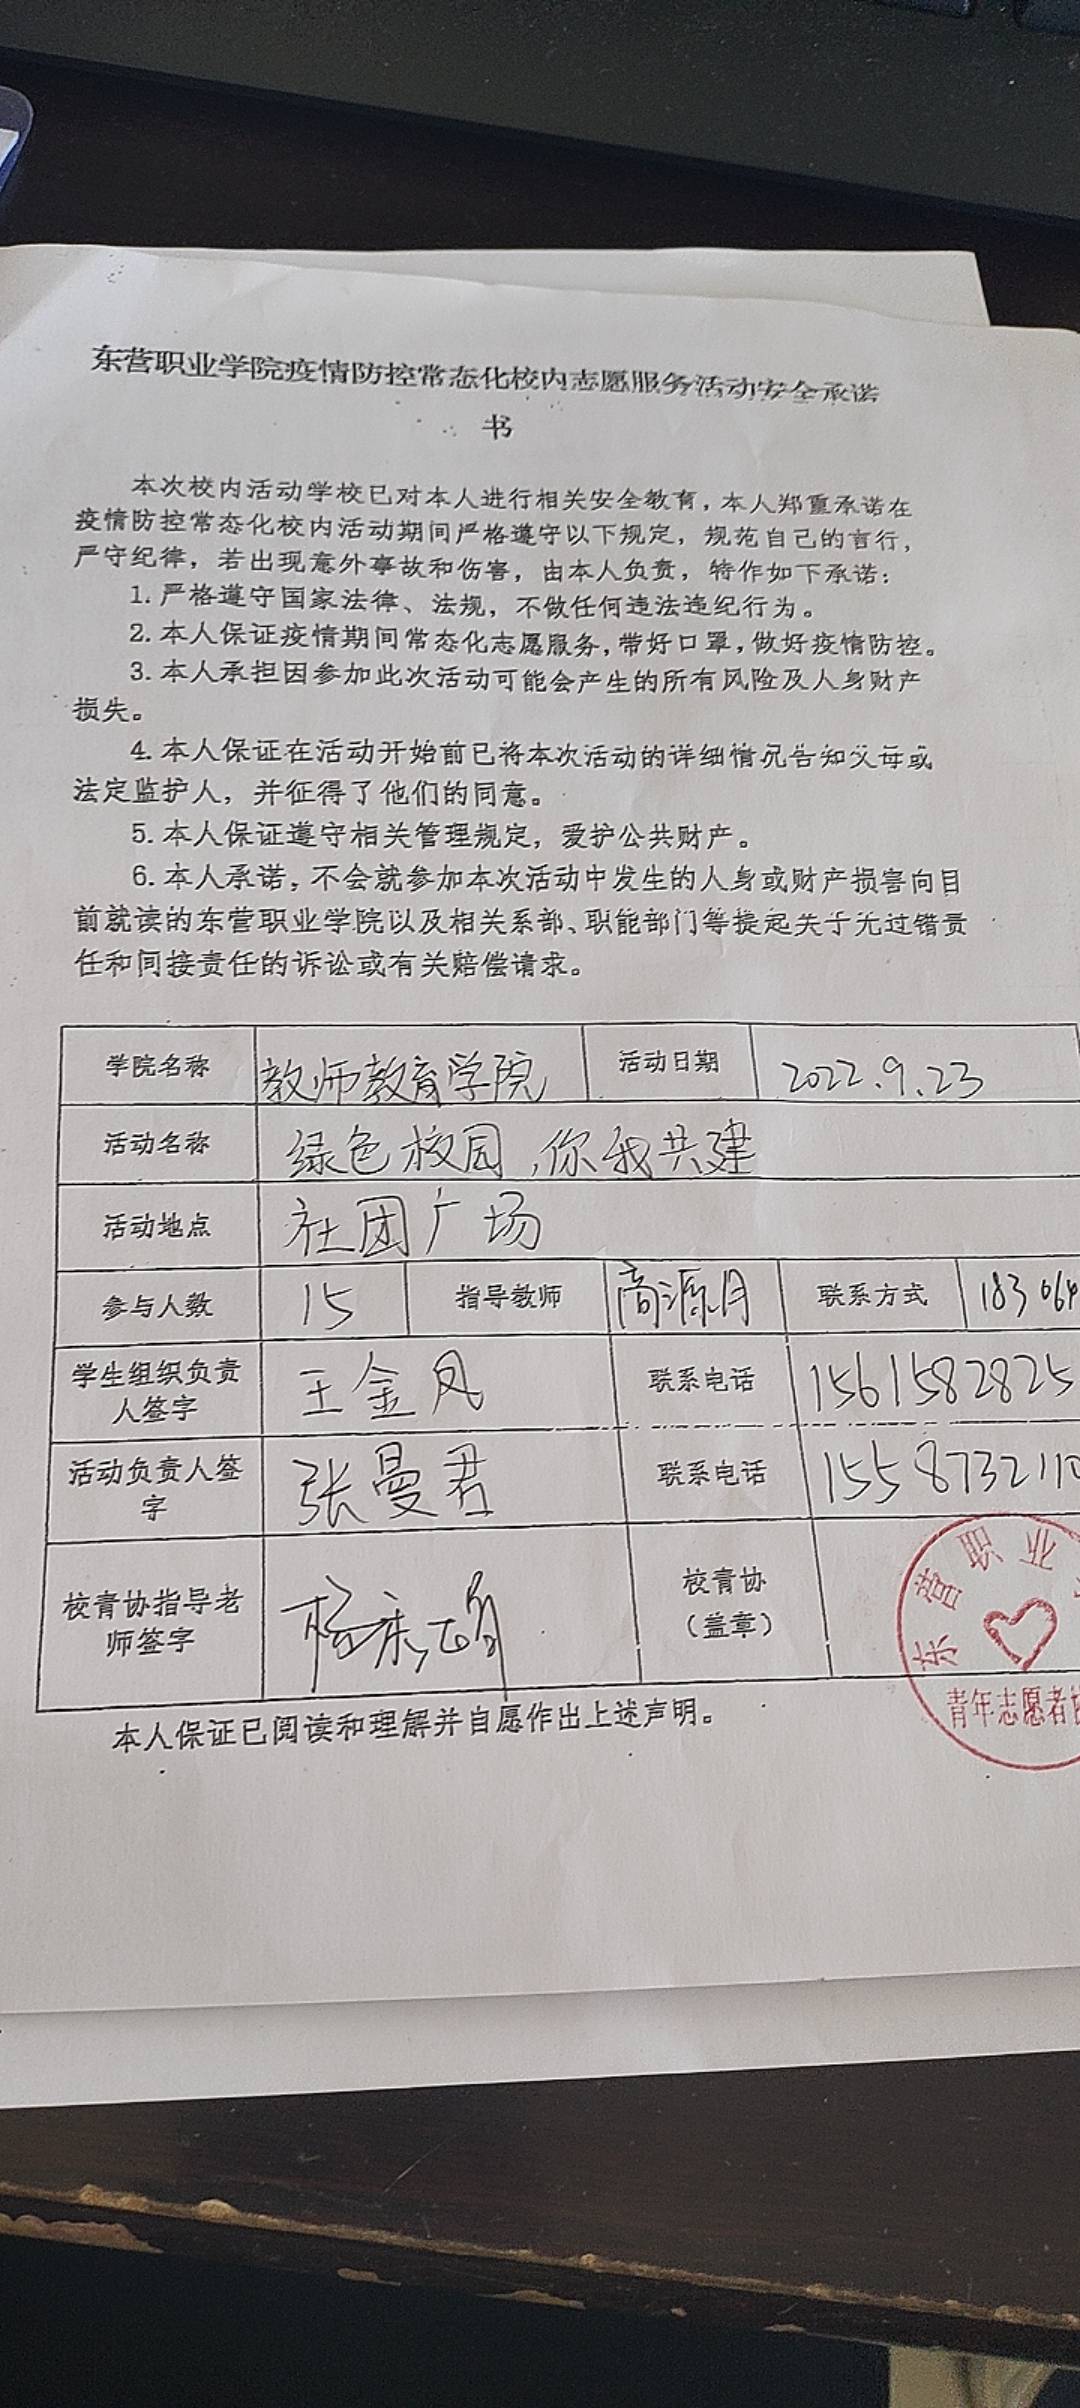 东营职业学院疫情防控常态化校内志愿服务活动安全承诺
书
本次校内活动学校已对本人进行相关安全教育，本人郑重承诺在
疫情防控常态化校内活动期间严格遵守以下规定，规范自己的言行，
严守纪律，若出现意外事故和伤害，由本人负责，特作如下承诺：
1. 严格遵守国家法律、法规，不做任何违法违纪行为。
2. 本人保证疫情期间常态化志愿服务，带好口罩，做好疫情防控。
3. 本人承担因参加此次活动可能会产生的所有风险及人身财产
损失。
4. 本人保证在活动开始前已将本次活动的详细情况告知父母或
法定监护人，并征得了他们的同意。
5. 本人保证遵守相关管理规定，爱护公共财产。
6. 本人承诺，不会就参加本次活动中发生的人身或财产损害向目
前就读的东营职业学院以及相关系部、职能部门等提起关于无过错责
任和间接责任的诉讼或有关赔偿请求。
学院名称 教师教育学院 活动日期 2022.9.23
活动名称 绿色校园，你我共建
活动地点 社团广场
参与人数 15 指导教师 商源月 联系方式 183064
学生组织负责
人签字 王金凤 联系电话 1561582825
活动负责人签
字 张曼君 联系电话 1558732110
校青协指导老
师签字 校青协
（盖章）
东营职业
青年志愿者协
本人保证已阅读和理解并自愿作出上述声明。